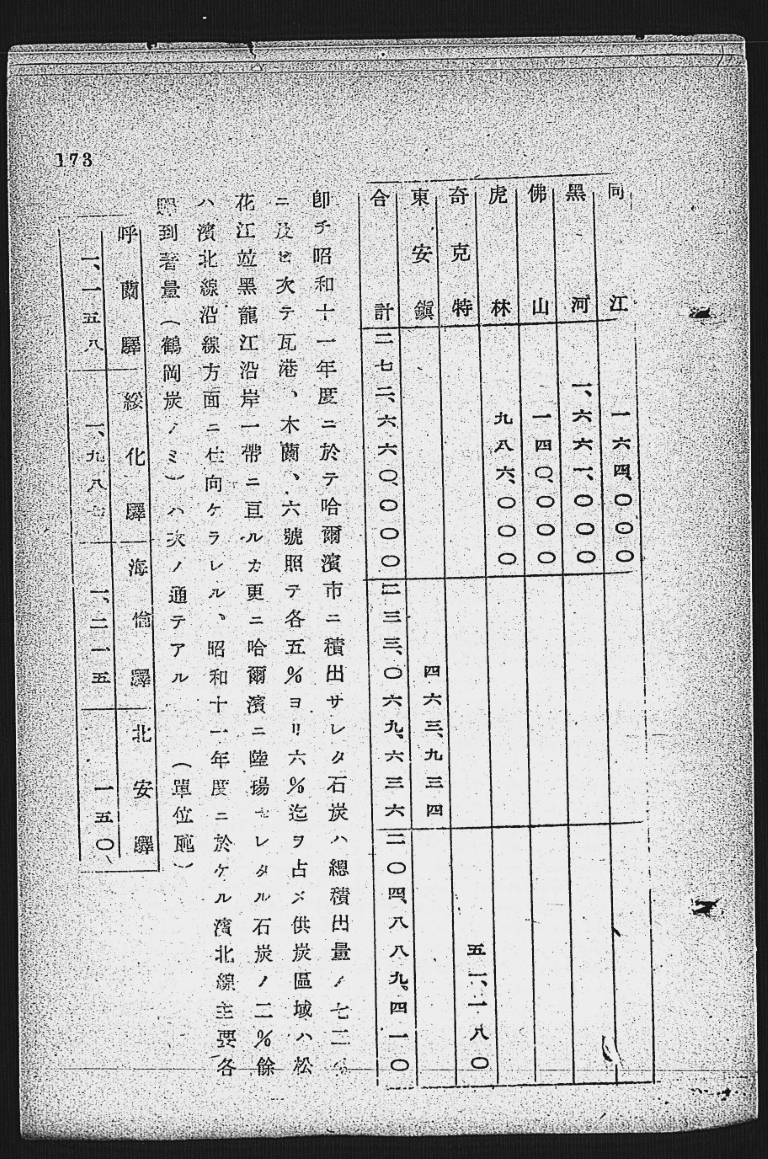 173
同江 一六四、〇〇〇
黑河 一、六六一、〇〇〇
佛山 一四〇、〇〇〇
虎林 九八六、〇〇〇
奇克特 五一、一八〇
東安鎭 四六三、九三四
合計 二七二、六六〇、〇〇〇 二三三、〇六九、六三六 二〇四、八八九、四一〇
卽チ昭和十一年度ニ於テ哈爾濱市ニ積出サレタ石炭ハ總積出量ノ七二
ニ及ビ次テ瓦港、木蘭、六號照テ各五%ヨリ六%迄ヲ占メ供炭區域ハ松
花江竝黑龍江沿岸一帶ニ亘ルカ更ニ哈爾濱ニ陸揚セレタル石炭ノ二%餘
ハ濱北線沿線方面ニ仕向ケラレル、昭和十一年度ニ於ケル濱北線主要各
驛到著量(鶴岡炭ノミ)ハ次ノ通テアル (單位瓲)
呼蘭驛 綏化驛 海倫驛 北安驛
一、一五八 一、九八 一、二一五 一五〇